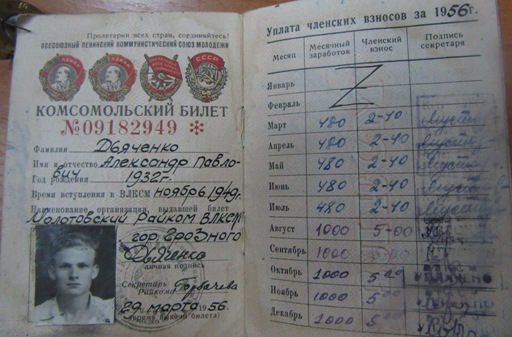 Пролетарии всех стран, соединяйтесь!
ВСЕСОЮЗНЫЙ ЛЕНИНСКИЙ КОММУНИСТИЧЕСКИЙ СОЮЗ МОЛОДЕЖИ
КОМСОМОЛЬСКИЙ БИЛЕТ
№09182949 *
Фамилия Дьяченко
Имя и отчество Александр Павло-
вич
Год рождения 1932г.
Время вступления в ВЛКСМ ноябрь 1949г.
Наименование организации, выдавшей билет
Молотовский Райком ВЛКСМ
гор. Грозного
Дьяченко
личная подпись
Секретарь
Райкома Горбачева
29 марта 1956г.
(время выдачи билета)
Уплата членских взносов за 1956г.
Месяц Месячный заработок Членский взнос Подпись секретаря
Январь
Февраль
Март 480 2-40
Апрель 480 2-40
Май 480 2-40
Июнь 480 2-40
Июль 480 2-40
Август 1000 5-00
Сентябрь 1000 5-00
Октябрь 1000 5-00
Ноябрь 1000 5-00
Декабрь 1000 5-00